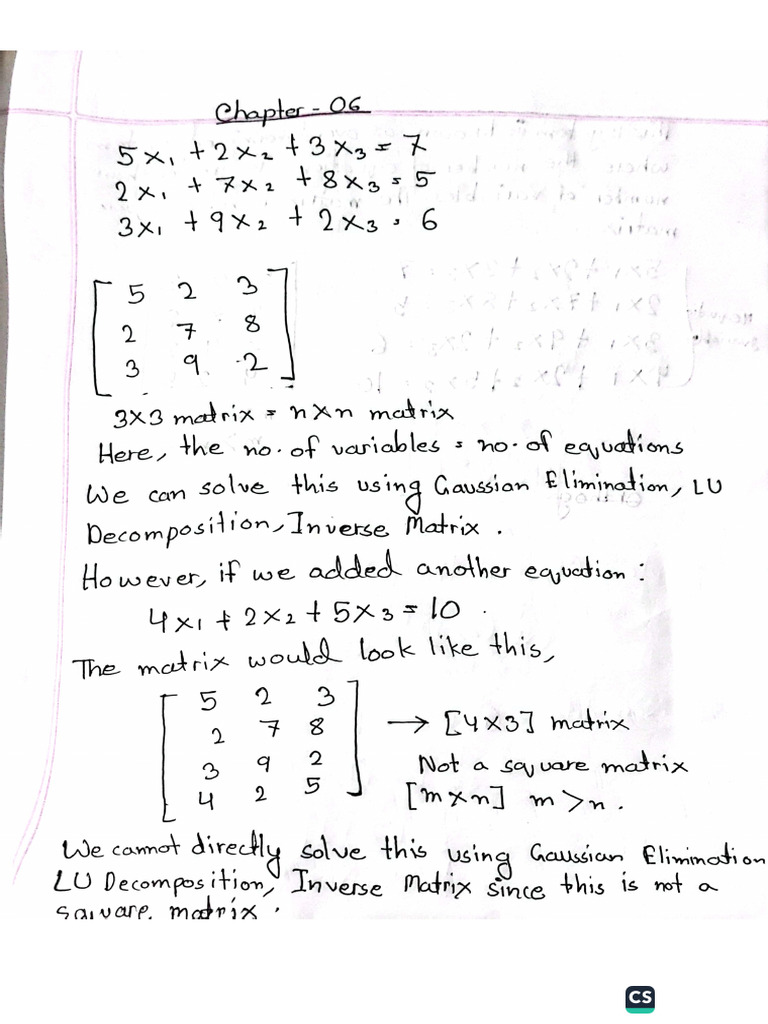 Chapter - 06
5x₁ + 2x₂ + 3x₃ = 7
2x₁ + 7x₂ + 8x₃ = 5
3x₁ + 9x₂ + 2x₃ = 6
5 2 3
2 7 8
3 9 2
3×3 matrix = n×n matrix
Here, the no. of variables = no. of equations
We can solve this using Gaussian Elimination, LU
Decomposition, Inverse Matrix.
However, if we added another equation:
4x₁ + 2x₂ + 5x₃ = 10
The matrix would look like this,
5 2 3
2 7 8 → [4×3] matrix
3 9 2 Not a square matrix
4 2 5 [m×n] m > n.
We cannot directly solve this using Gaussian Elimination
LU Decomposition, Inverse Matrix since this is not a
square matrix.
CS